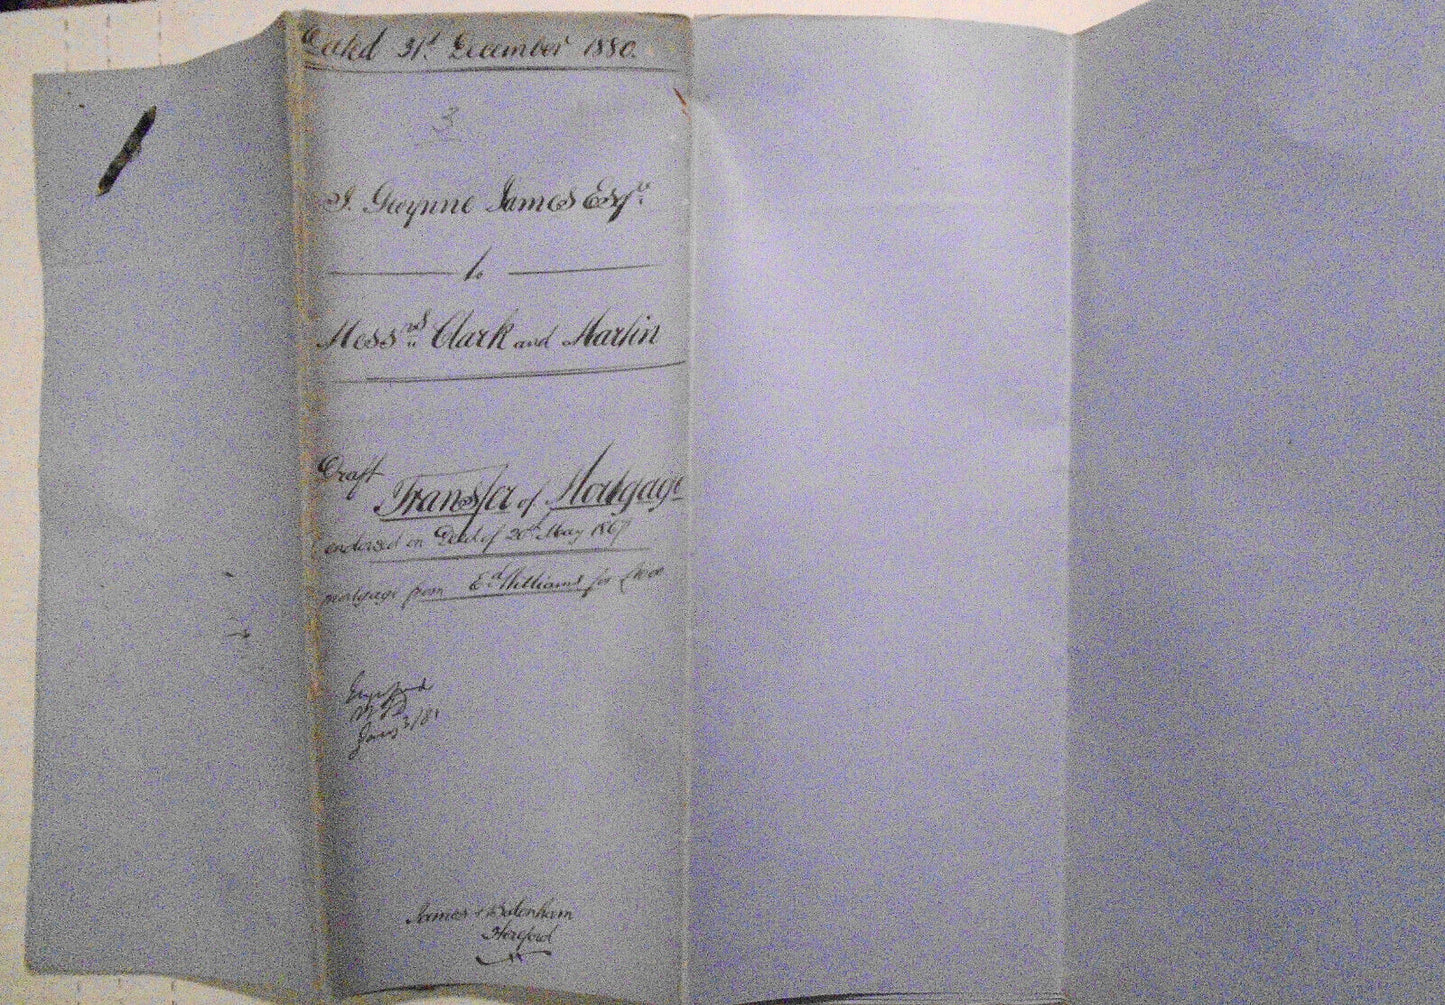 Dated 31st December 1880.
3
J. Gwynne James Esqre.
to
Messrs Clark and Martin
Draft
Transfer of Mortgage
endorsed on Deed of 20th May 1867
mortgage from Ed Williams for £1000
Jany 3/81
James & Bodenham
Hereford